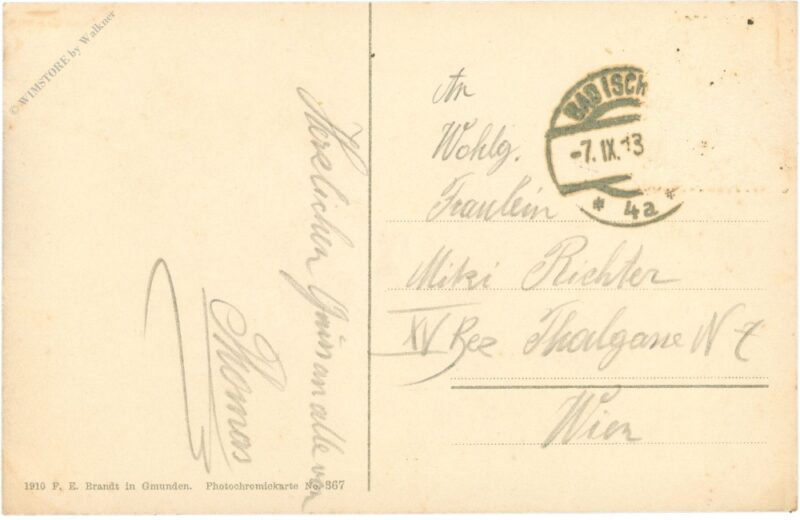 © WIMSTORE by Walkner
Herzlichen Gruss an alle von
Thomas
1910 F. E. Brandt in Gmunden. Photochromiekarte No. 367
BAD ISCH
-7.IX.13
* 4a *
An
Wohlg.
Fraulein
Miki Richter
XV Bez Thalgasse N
Wien